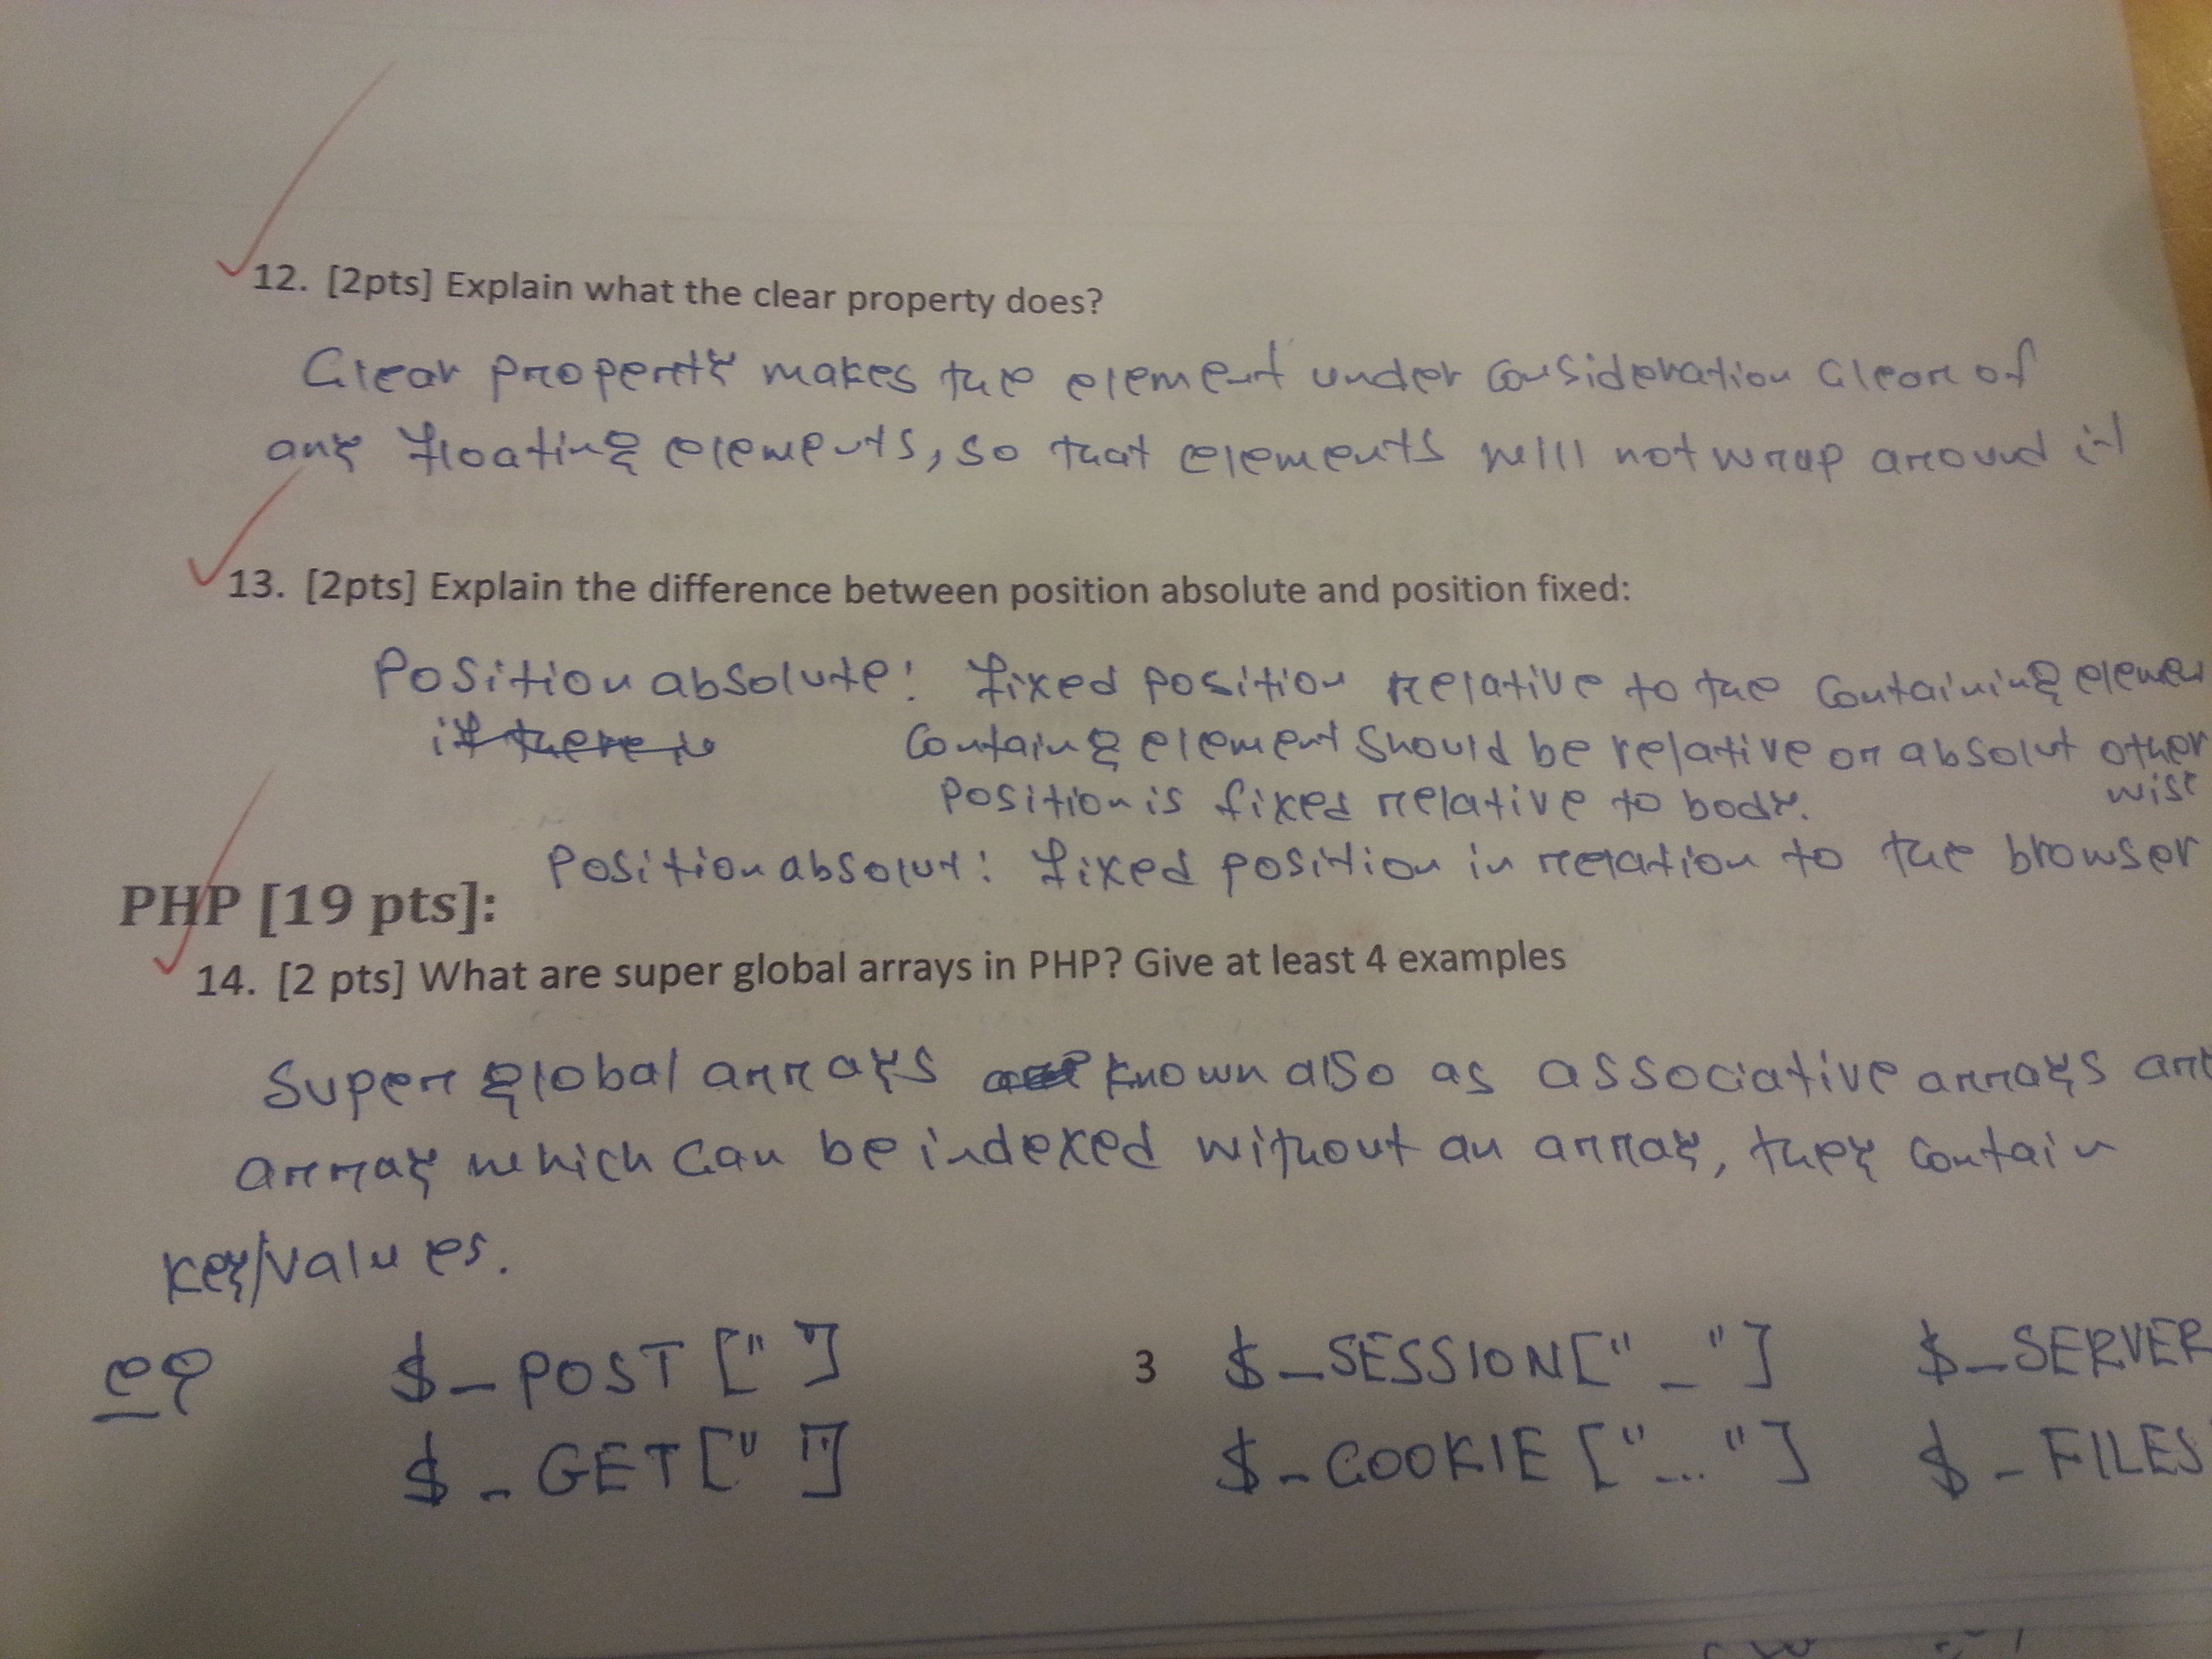 12. [2pts] Explain what the clear property does?
Clear property makes the element under consideration clear of
any floating elements, so that elements will not wrap around it
13. [2pts] Explain the difference between position absolute and position fixed:
Position absolute: fixed position relative to the containing
if there is containg element should be relative or absolut other
wise
position is fixed relative to body.
Position absolut: fixed position in relation to the browser
PHP [19 pts]:
14. [2 pts] What are super global arrays in PHP? Give at least 4 examples
Super global arrays known also as associative arrays are
array which can be indexed without an array, they contain
key/values.
eg $_POST [" "] 3 $_SESSION["_"] $_SERVER
$_GET[" "] $_COOKIE ["..."] $_FILES